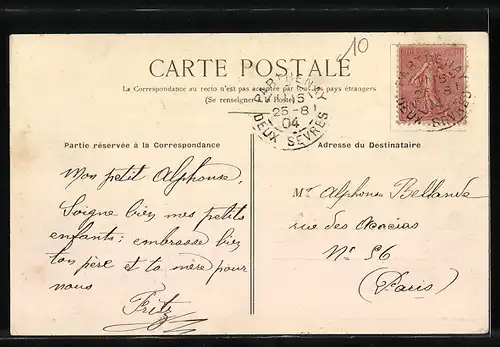 10
CARTE POSTALE
La Correspondance au recto n'est pas acceptée par tous les pays étrangers
(Se renseigner à la Poste)
PARTHENAY
25-8
04
DEUX SEVRES
Partie réservée à la Correspondance
Adresse du Destinataire
Mon petit Alphonse,
Soigne bien mes petits
enfants; embrasse bien
ton père et ta mère pour
nous
Fritz
Mr Alphonse Bellande
rue des Acacias
No 56
(Paris)